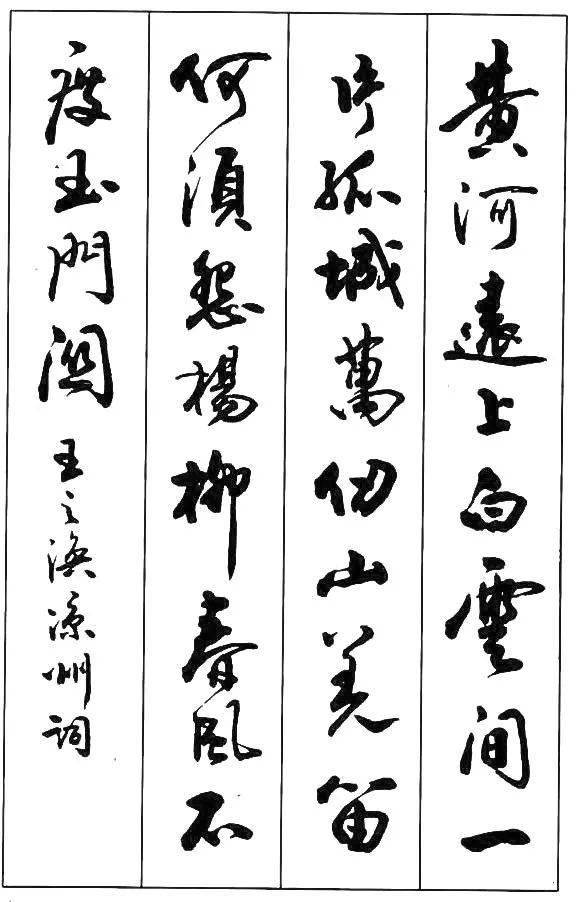 黄河遠上白雲间一
片孤城萬仞山羌笛
何須怨楊柳春風不
度玉門關王之渙涼州詞